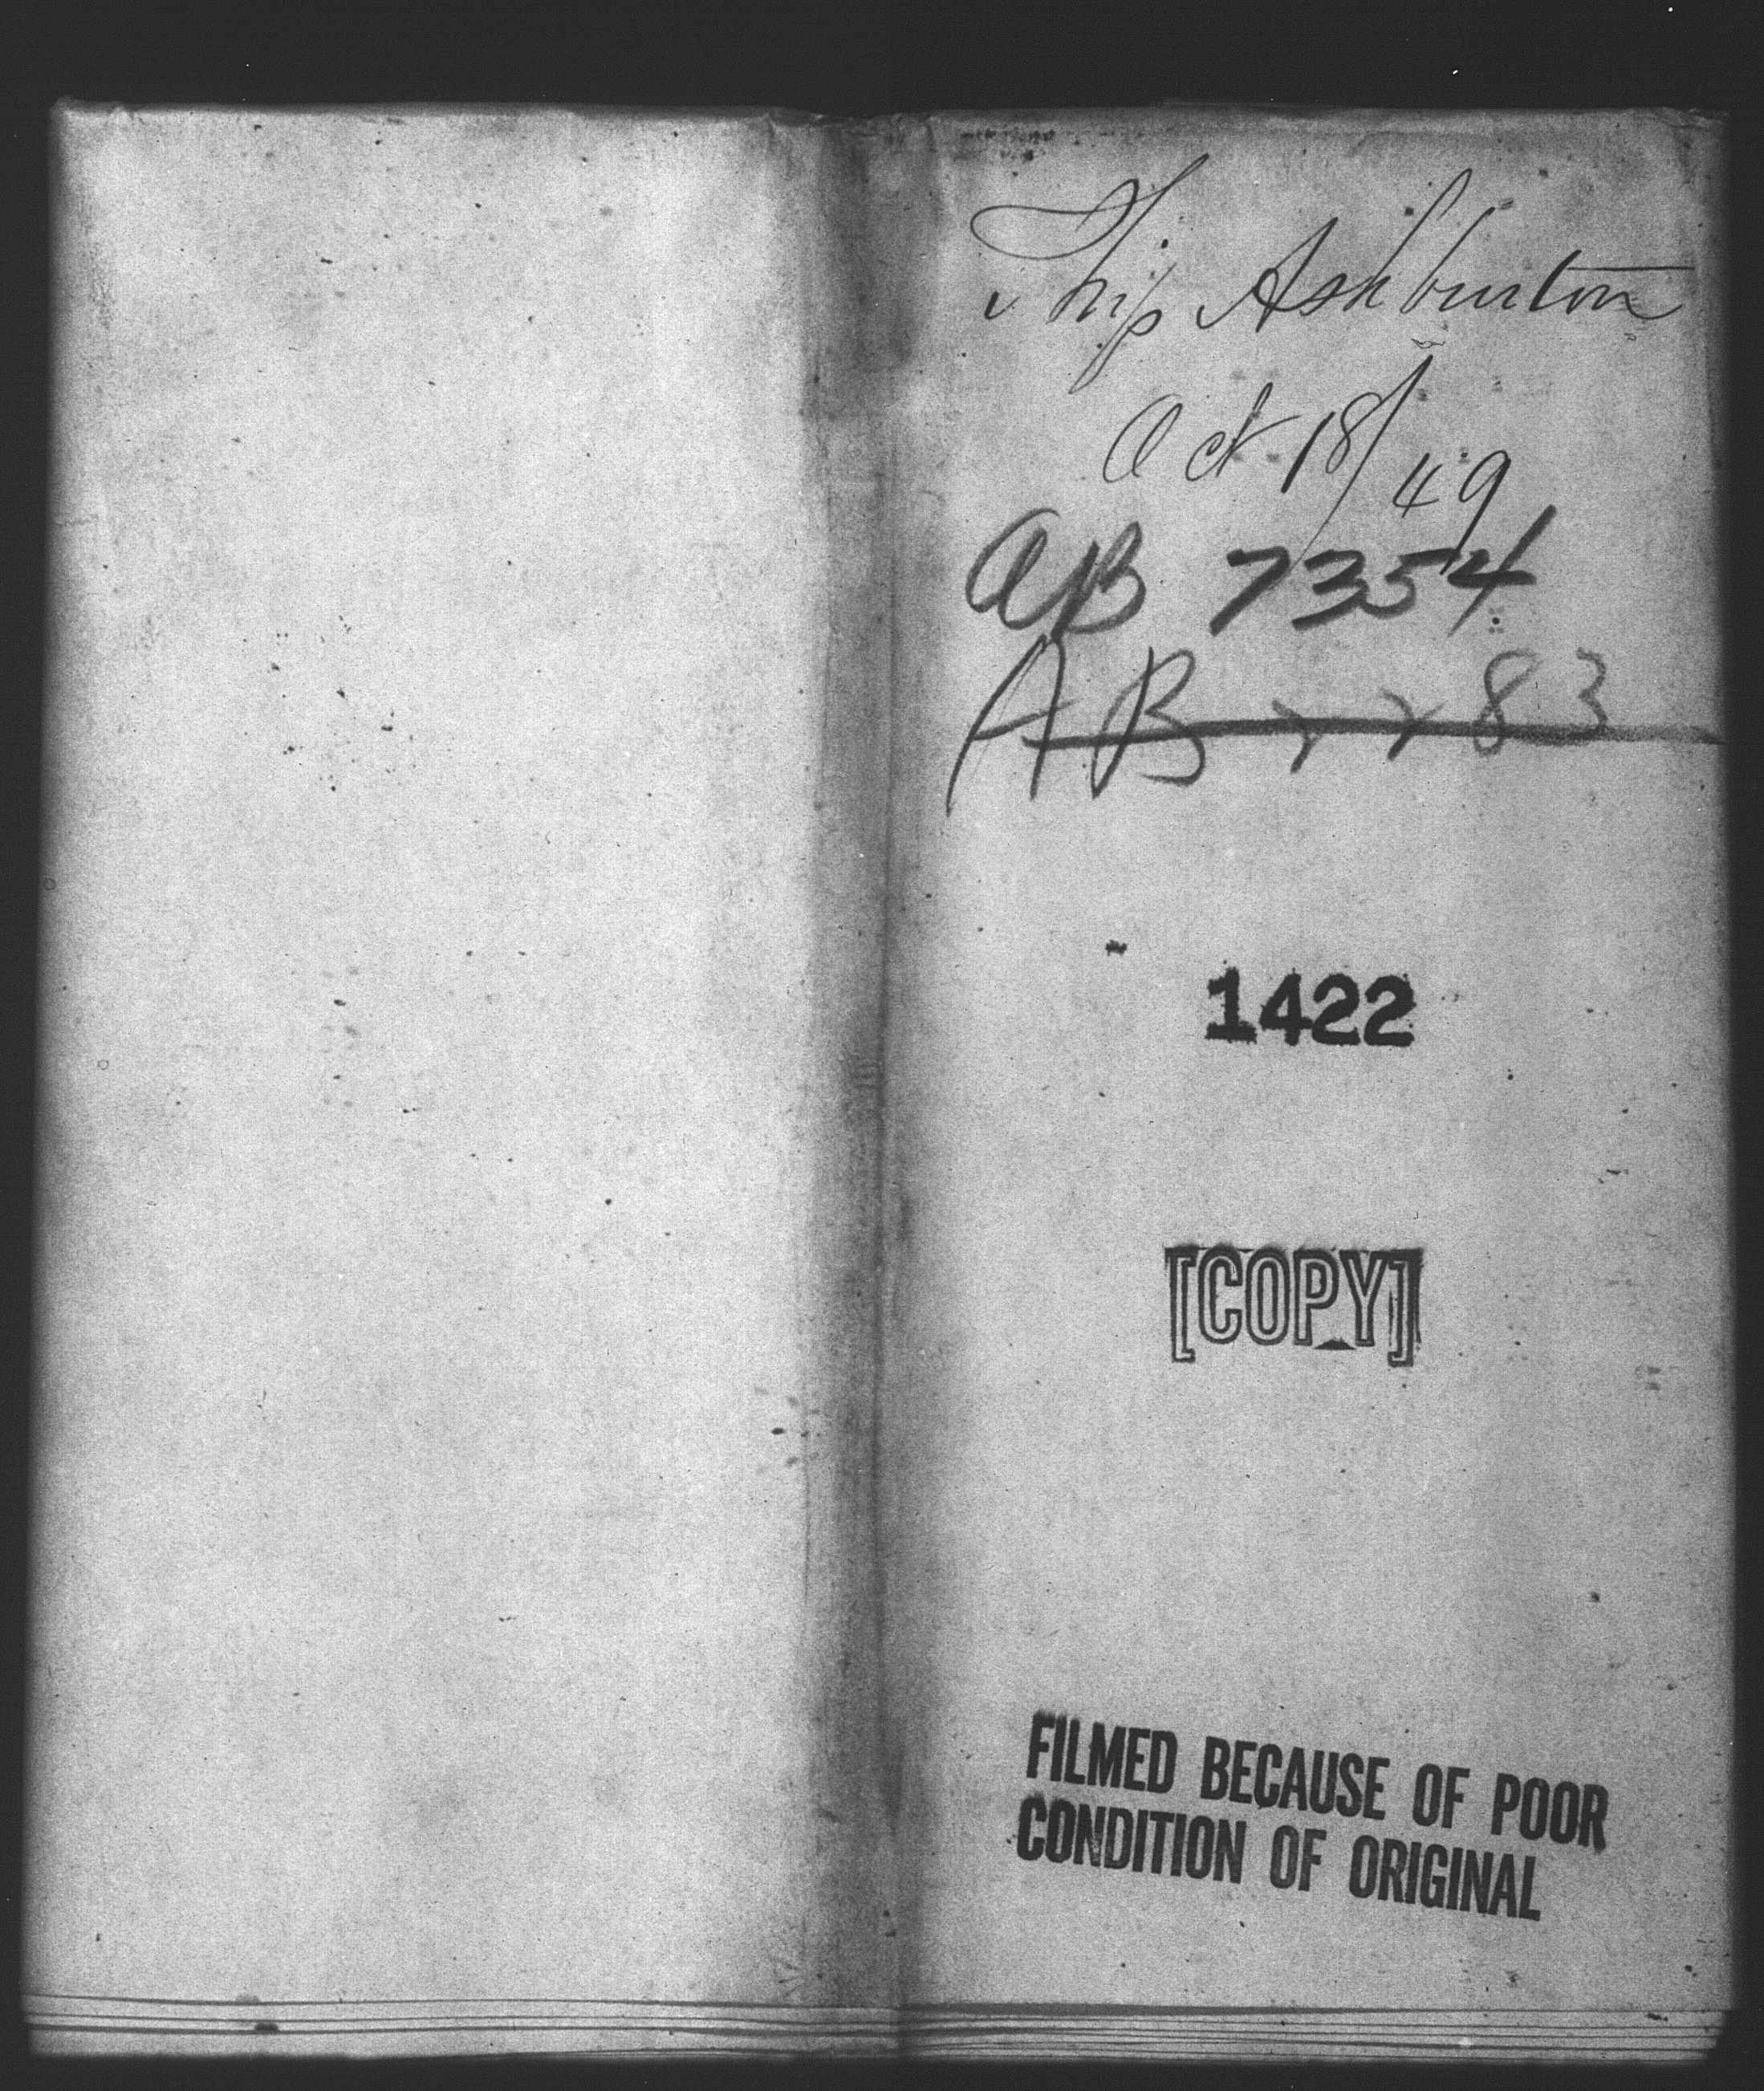 Ship Ashburton
Oct 18/49
AB 7354
AB 7783
1422
[COPY]
FILMED BECAUSE OF POOR
CONDITION OF ORIGINAL